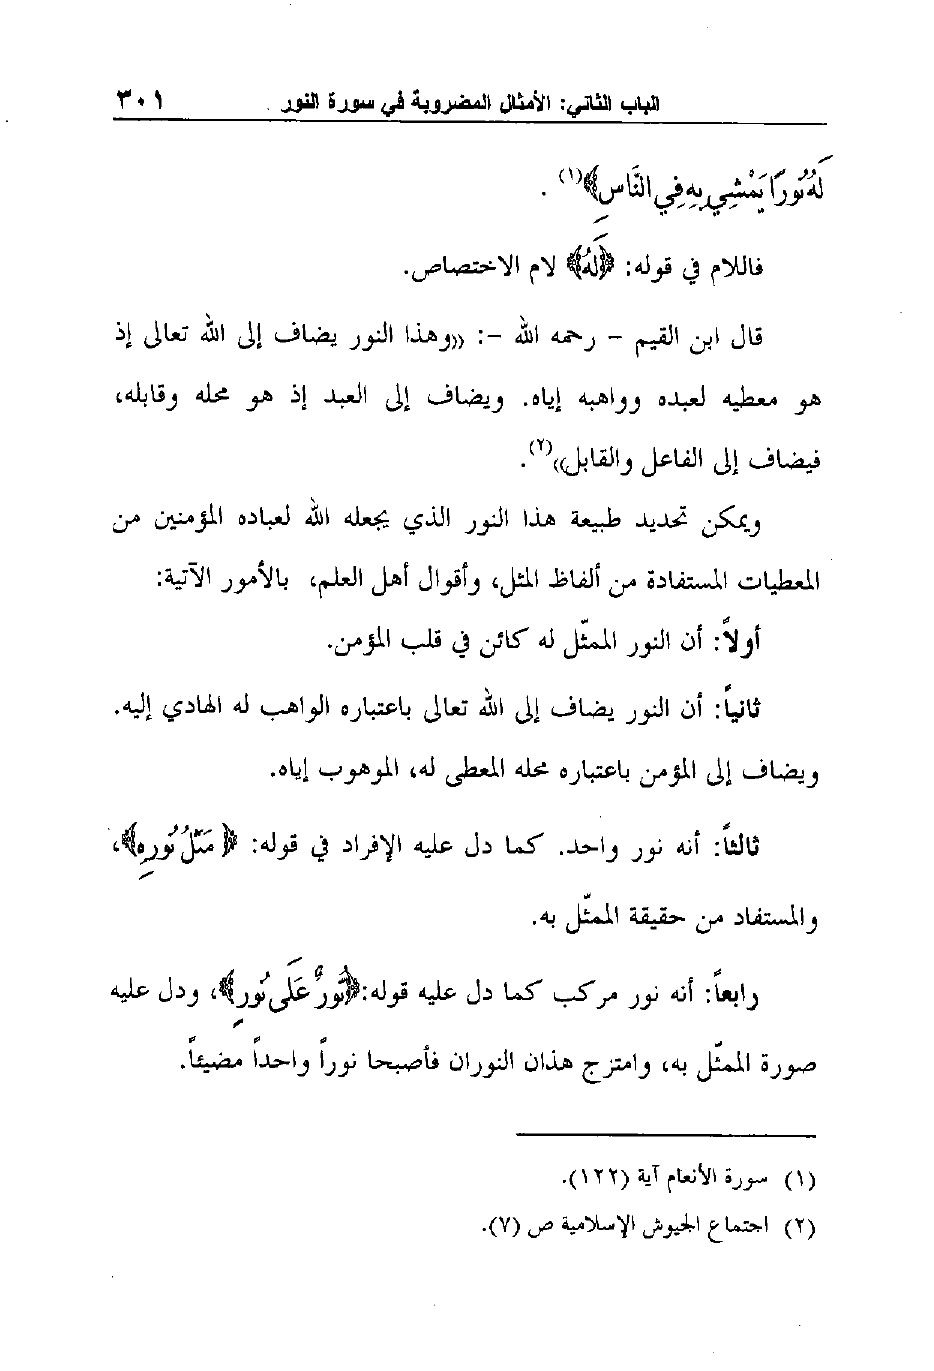 الباب الثاني: الأمثال المضروبة في سورة النور ٣٠١
لَهُ نُورًا يَمْشِي بِهِ فِي النَّاسِ﴾(١).
فاللام في قوله: ﴿لَهُ﴾ لام الاختصاص.
قال ابن القيم - رحمه الله -: ((وهذا النور يضاف إلى الله تعالى إذ
هو معطيه لعبده وواهبه إياه. ويضاف إلى العبد إذ هو محله وقابله،
فيضاف إلى الفاعل والقابل))(٢).
ويمكن تحديد طبيعة هذا النور الذي يجعله الله لعباده المؤمنين من
المعطيات المستفادة من ألفاظ المثل، وأقوال أهل العلم، بالأمور الآتية:
أولاً: أن النور الممثّل له كائن في قلب المؤمن.
ثانياً: أن النور يضاف إلى الله تعالى باعتباره الواهب له الهادي إليه.
ويضاف إلى المؤمن باعتباره محله المعطى له، الموهوب إياه.
ثالثاً: أنه نور واحد. كما دل عليه الإفراد في قوله: ﴿مَثَلُ نُورِهِ﴾،
والمستفاد من حقيقة الممثّل به.
رابعاً: أنه نور مركب كما دل عليه قوله: ﴿نُورٌ عَلَى نُورٍ﴾، ودل عليه
صورة الممثّل به، وامتزج هذان النوران فأصبحا نوراً واحداً مضيئاً.
(١) سورة الأنعام آية (١٢٢).
(٢) اجتماع الجيوش الإسلامية ص (٧).